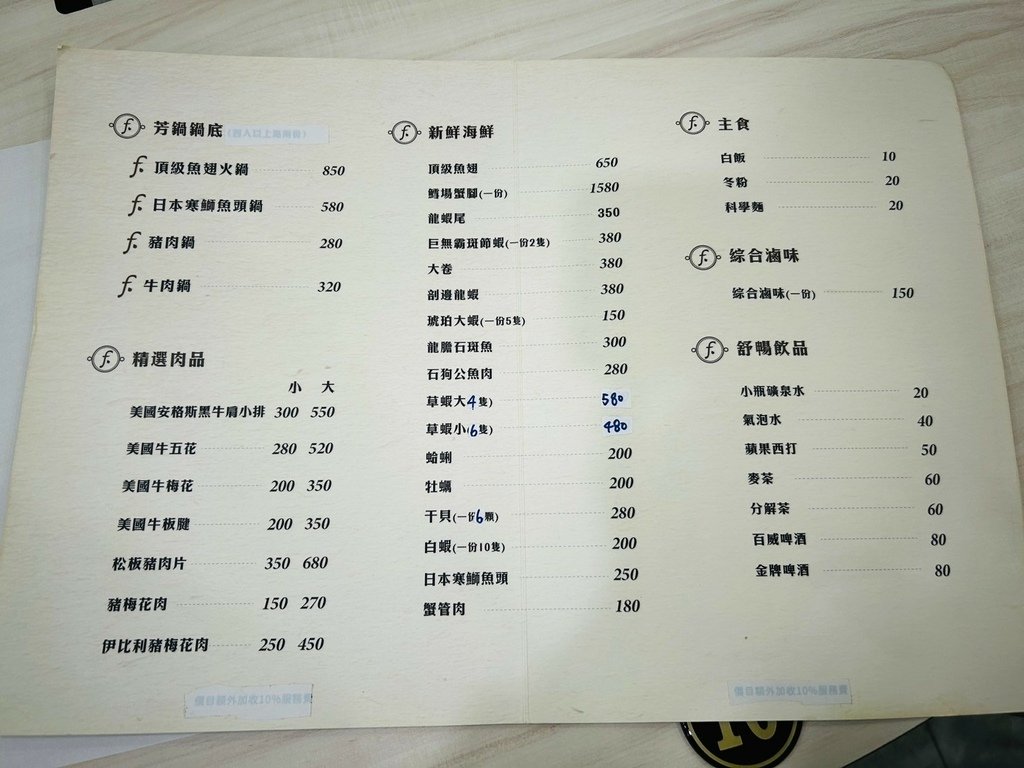 芳鍋鍋底
f. 頂級魚翅火鍋 850
f. 日本寒鰤魚頭鍋 580
f. 豬肉鍋 280
f. 牛肉鍋 320
精選肉品
小 大
美國安格斯黑牛肩小排 300 550
美國牛五花 280 520
美國牛梅花 200 350
美國牛板腱 200 350
松板豬肉片 350 680
豬梅花肉 150 270
伊比利豬梅花肉 250 450
價目額外加收10%服務費
新鮮海鮮
頂級魚翅 650
鱈場蟹腳(一份) 1580
龍蝦尾 350
巨無霸斑節蝦(一份2隻) 380
大卷 380
剖邊龍蝦 380
琥珀大蝦(一份5隻) 150
龍膽石斑魚 300
石狗公魚肉 280
草蝦大4隻) 580
草蝦小(6隻) 480
蛤蜊 200
牡蠣 200
干貝(一份6顆) 280
白蝦(一份10隻) 200
日本寒鰤魚頭 250
蟹管肉 180
主食
白飯 10
冬粉 20
科學麵 20
綜合滷味
綜合滷味(一份) 150
舒暢飲品
小瓶礦泉水 20
氣泡水 40
蘋果西打 50
麥茶 60
分解茶 60
百威啤酒 80
金牌啤酒 80
價目額外加收10%服務費